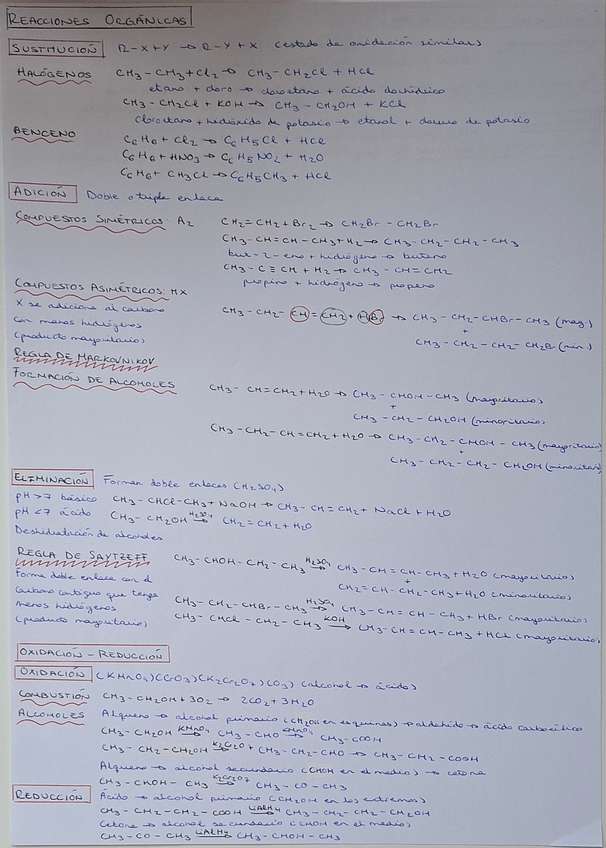 REACCIONES ORGÁNICAS
SUSTITUCIÓN R-X+Y → R-Y+X (estado de oxidación similar)
HALÓGENOS CH3-CH3+Cl2 → CH3-CH2Cl + HCl
etano + cloro → cloroetano + ácido clorhídrico
CH3-CH2Cl + KOH → CH3-CH2OH + KCl
cloroetano + hidróxido de potasio → etanol + cloruro de potasio
BENCENO C6H6 + Cl2 → C6H5Cl + HCl
C6H6+HNO3 → C6H5NO2 + H2O
C6H6+ CH3Cl → C6H5CH3 + HCl
ADICIÓN Doble o triple enlace
COMPUESTOS SIMÉTRICOS: A2 CH2=CH2+Br2 → CH2Br-CH2Br
CH3-CH=CH-CH3+H2 → CH3-CH2-CH2-CH3
but-2-eno + hidrógeno → butano
CH3-C≡CH + H2 → CH3-CH=CH2
propino + hidrógeno → propeno
COMPUESTOS ASIMÉTRICOS: HX
X se adiciona al carbono
con menos hidrógenos
(producto mayoritario)
CH3-CH2-CH=CH2+HBr → CH3-CH2-CHBr-CH3 (may.)
+
CH3-CH2-CH2-CH2Br (min.)
REGLA DE MARKOVNIKOV
FORMACIÓN DE ALCOHOLES CH3-CH=CH2+H2O → CH3-CHOH-CH3 (mayoritario)
+
CH3-CH2-CH2OH (minoritario)
CH3-CH2-CH=CH2+H2O → CH3-CH2-CHOH-CH3 (mayoritario)
+
CH3-CH2-CH2-CH2OH (minoritario)
ELIMINACIÓN Forman doble enlaces (H2SO4)
pH>7 básico CH3-CHCl-CH3+NaOH → CH3-CH=CH2+ NaCl + H2O
pH<7 ácido CH3-CH2OH H2SO4→ CH2=CH2+H2O
Deshidratación de alcoholes
REGLA DE SAYTZEFF CH3-CHOH-CH2-CH3 H2SO4→ CH3-CH=CH-CH3+H2O (mayoritario)
+
CH2=CH-CH2-CH3+H2O (minoritario)
Forma doble enlace con el
carbono contiguo que tenga
menos hidrógenos
(producto mayoritario)
CH3-CH2-CHBr-CH3 H2SO4→ CH3-CH=CH-CH3 + HBr (mayoritario)
CH3-CHCl-CH2-CH3 KOH→ CH3-CH=CH-CH3 + HCl (mayoritario)
OXIDACIÓN-REDUCCIÓN
OXIDACIÓN (KMnO4)(CrO3)(K2Cr2O7)(O3) (alcohol → ácidos)
COMBUSTIÓN CH3-CH2OH+3O2 → 2CO2+3H2O
ALCOHOLES Alqueno → alcohol primario (CH2OH en esquinas) → aldehído → ácido carboxílico
CH3-CH2OH KMnO4→ CH3-CHO KMnO4→ CH3-COOH
CH3-CH2-CH2OH K2Cr2O7→ CH3-CH2-CHO → CH3-CH2-COOH
Alqueno → alcohol secundario (CHOH en el medio) → cetona
CH3-CHOH-CH3 K2Cr2O7→ CH3-CO-CH3
REDUCCIÓN Ácido → alcohol primario (CH2OH en los extremos)
CH3-CH2-CH2-COOH LiAlH4→ CH3-CH2-CH2-CH2OH
Cetona → alcohol secundario (CHOH en el medio)
CH3-CO-CH3 LiAlH4→ CH3-CHOH-CH3